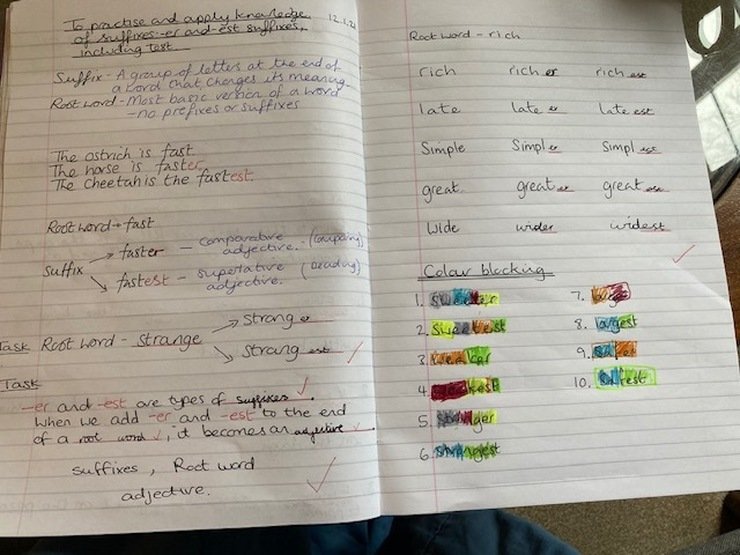 To practise and apply knowledge 12.1.21
of suffixes -er and -est suffixes,
including test
Suffix - A group of letters at the end of
a word that changes its meaning.
Root word - Most basic version of a word
- no prefixes or suffixes
The ostrich is fast
The horse is faster
The Cheetah is the fastest.
Root word → fast
Suffix
faster - comparative adjective. - (comparing)
fastest - superlative adjective.
Task Root word - Strange
stranger
strangest
Task
-er and -est are types of suffixes.
When we add -er and -est to the end
of a root word, it becomes an adjective.
suffixes, Root word
adjective.
Root word - rich
rich richer richest
late lateer lateest
Simple Simpler Simplest
great greater greatest
Wide wider widest
Colour blocking
1. Sweeter
2. Sweetest
3.
4.
5. Stranger
6. Strangest
7.
8. largest
9. Safer
10. Safest